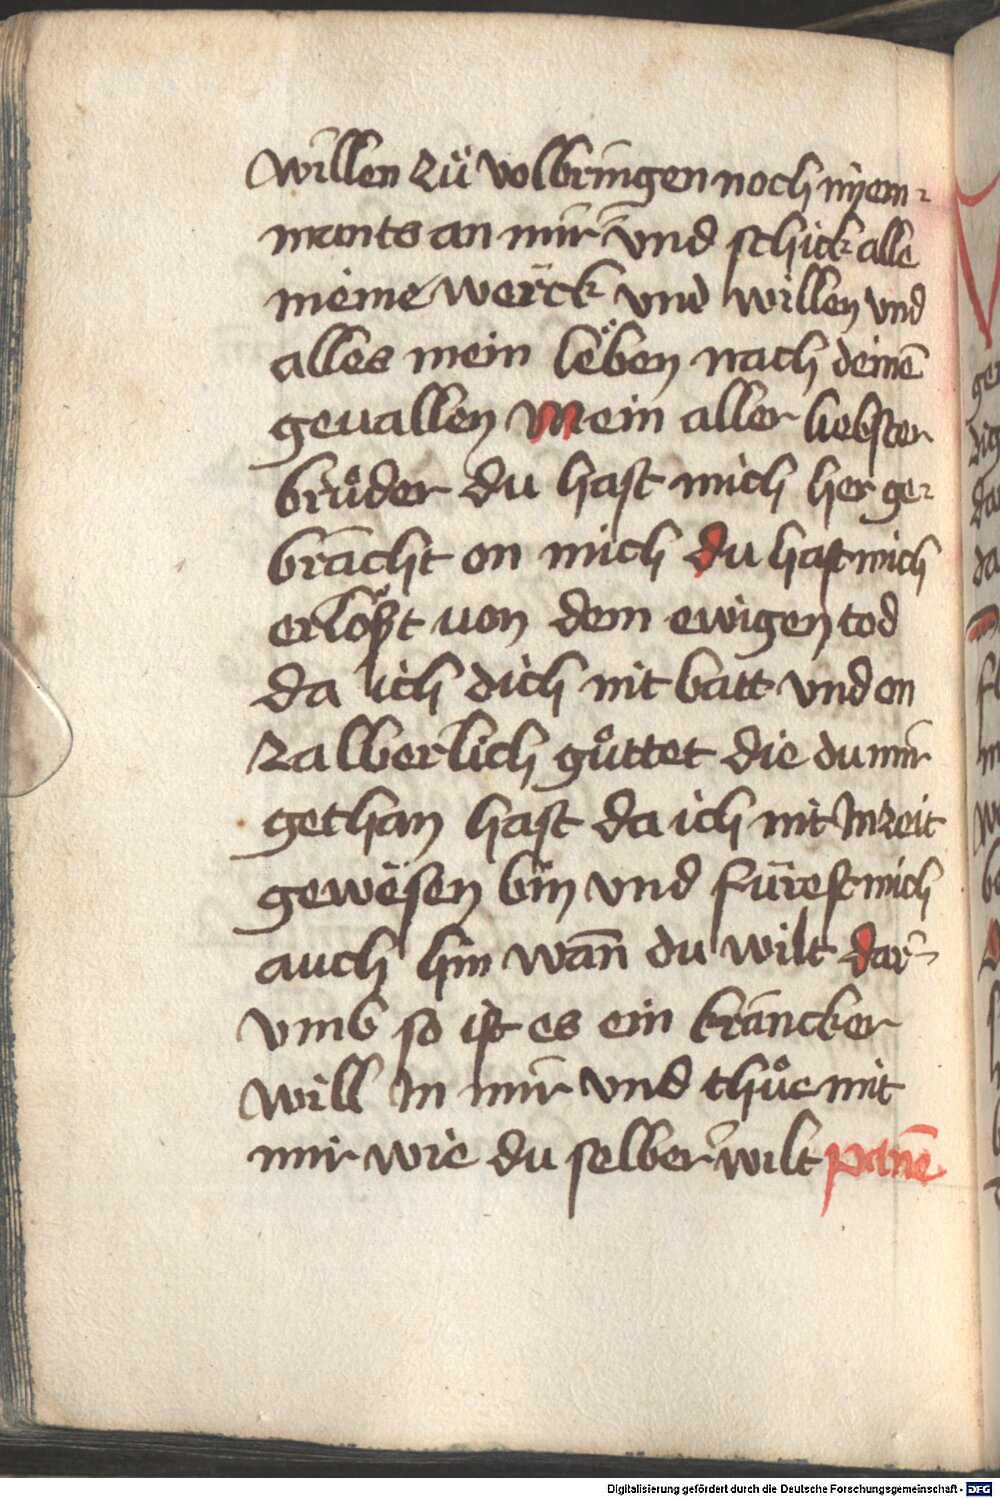 willen zü volbringen noch nyem-
mants an mir vnd schick alle
meine werck vnd willen vnd
alles mein leben nach deinē
geuallen Mein aller liebster
brůder du hast mich her ge-
bracht on mich du hast mich
erlößt von dem ewigen tod
da ich dich nit batt vnd on
zalberlich gůttet die du mir
gethan hast da ich nit In zeit
gewesen bin vnd fürest mich
auch hin wañ du wilt dar-
vmb so ist es ein krancker
will In mir vnd thůe mit
mir wie du selber wilt
Digitalisierung gefördert durch die Deutsche Forschungsgemeinschaft - DFG